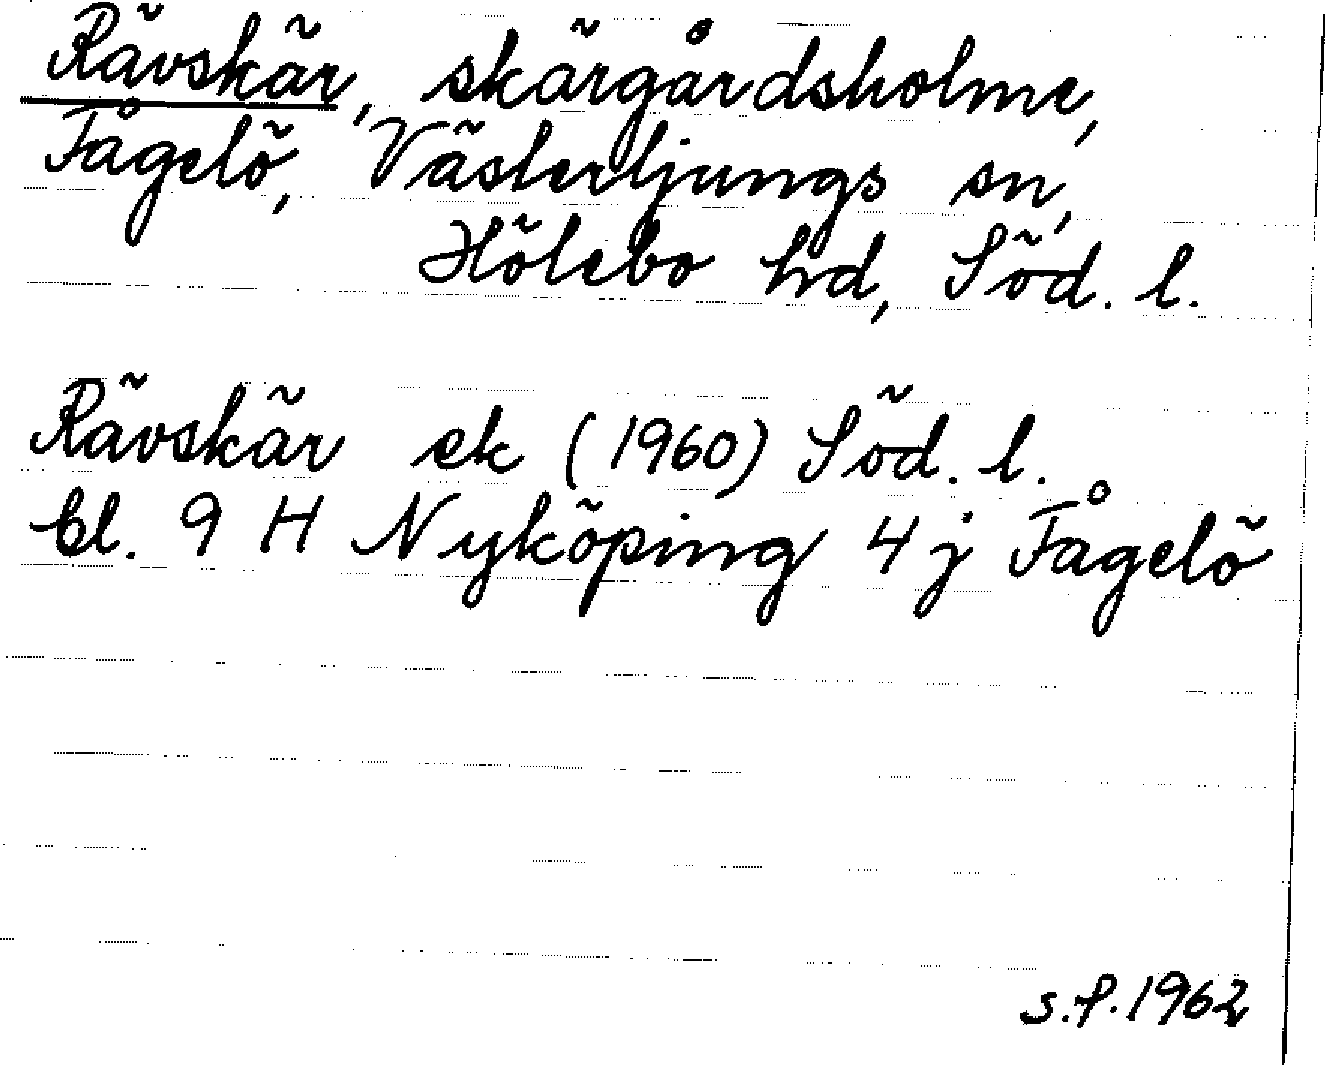 Rävskär, skärgårdsholme,
Fågelö, Västerljungs sn,
Hölebo hd, Söd. l.
Rävskär ek (1960) Söd. l.
bl. 9 H Nyköping 4 j Fågelö
s.f. 1962